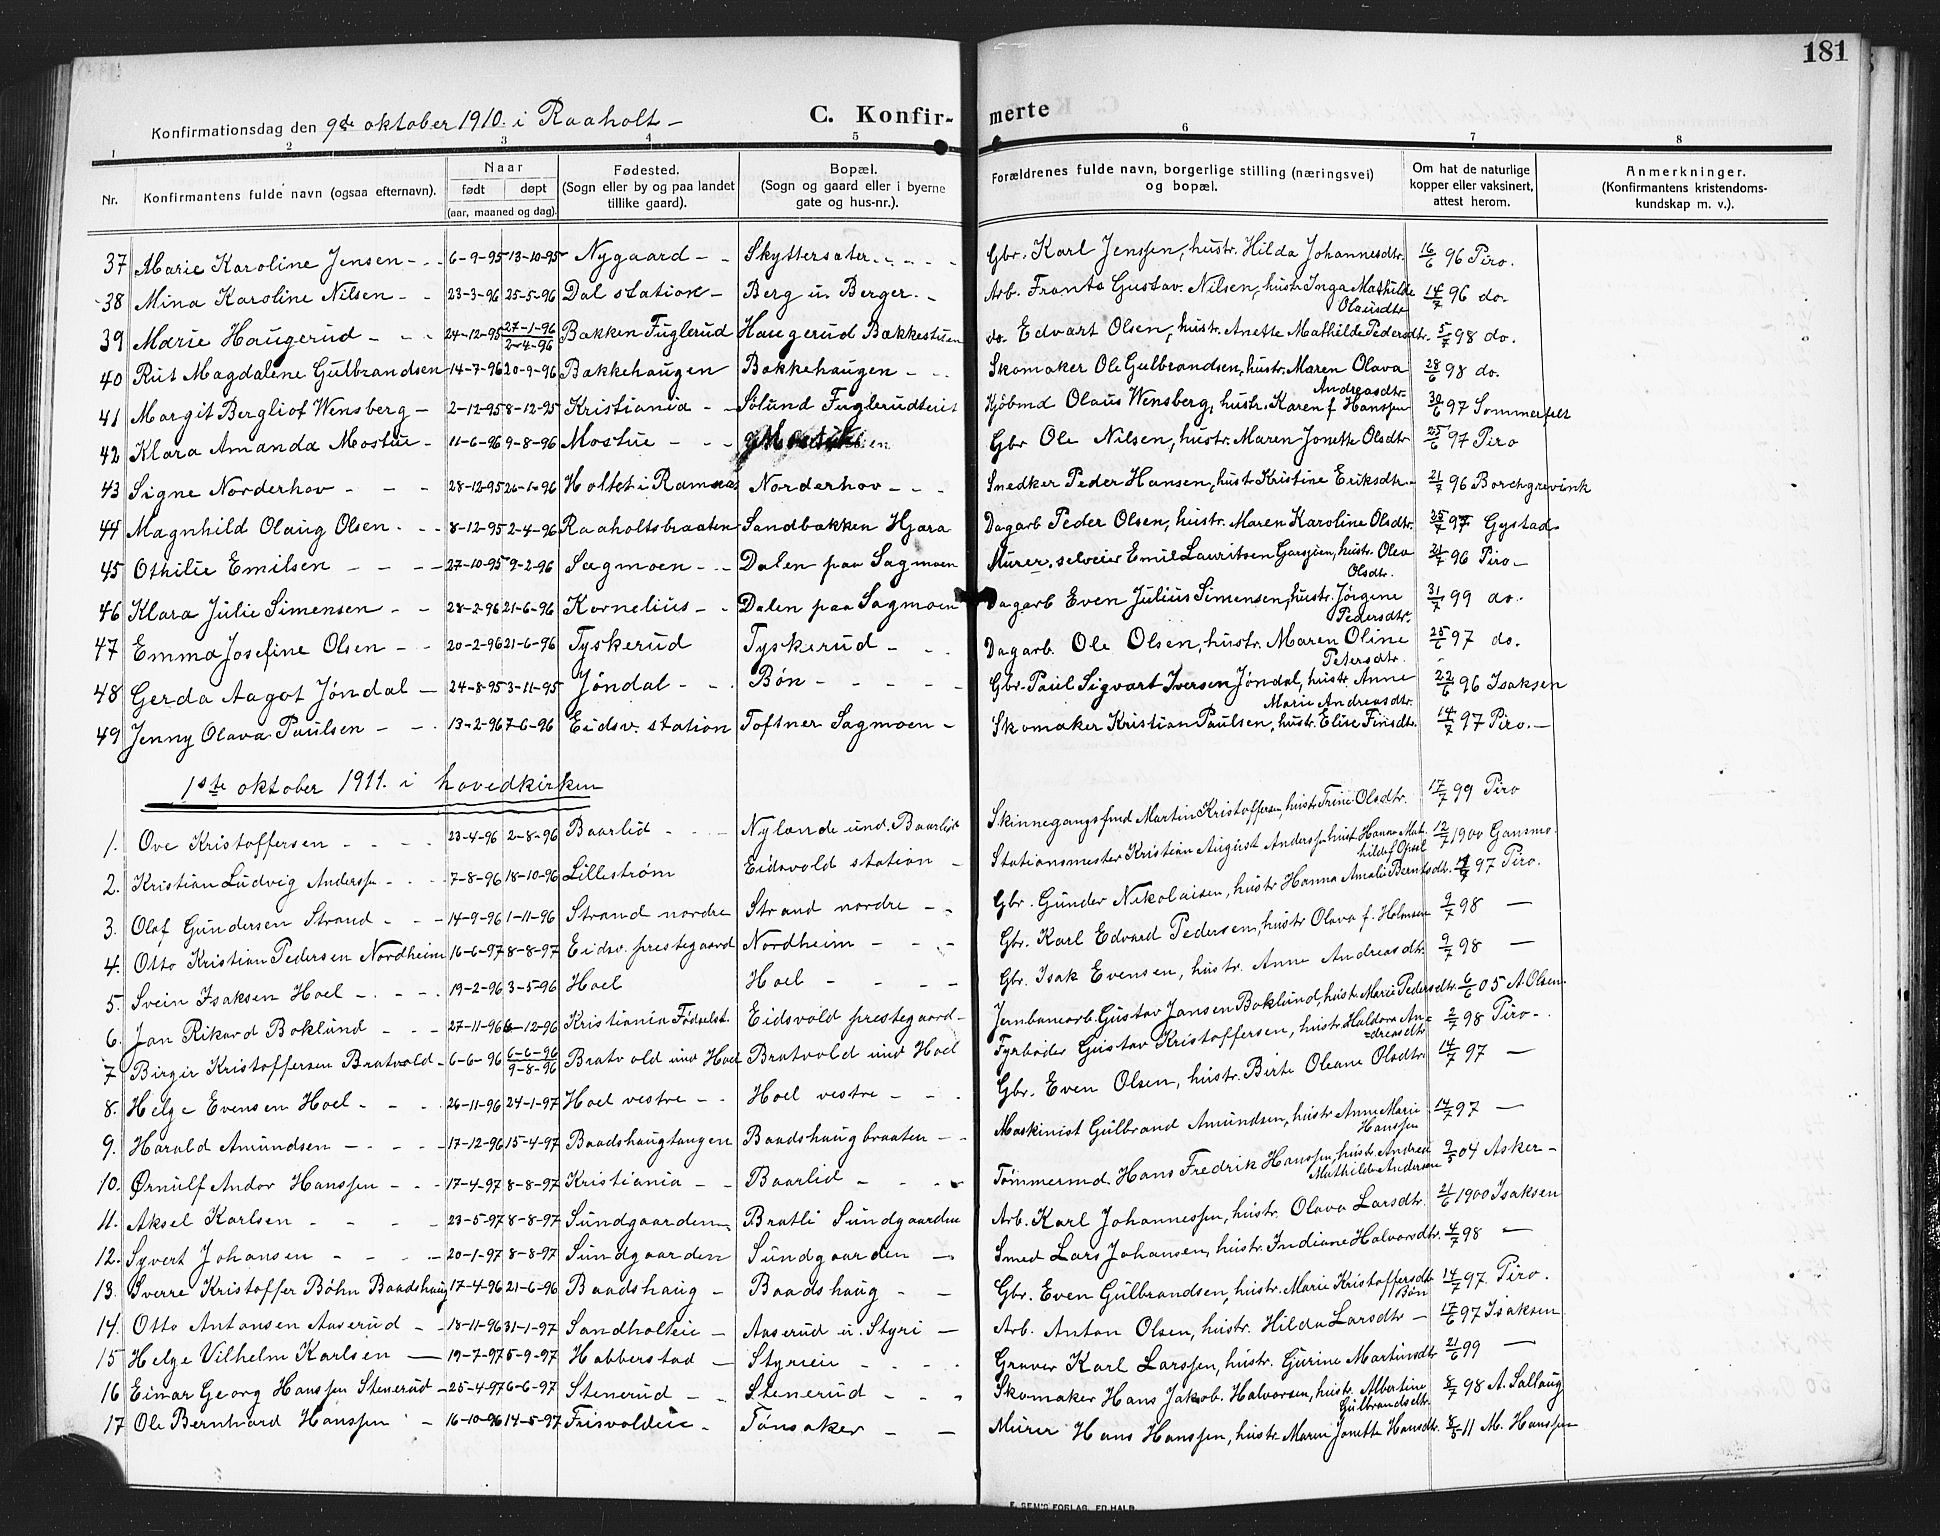 181
Konfirmationsdag den 9de oktober 1910. i Raaholt –
C. Konfir- merte
1 2 3 4 5 6 7 8
Nr. Konfirmantens fulde navn (ogsaa efternavn). Naar født døpt (aar, maaned og dag). Fødested. (Sogn eller by og paa landet tillike gaard). Bopæl. (Sogn og gaard eller i byerne gate og hus-nr.). Forældrenes fulde navn, borgerlige stilling (næringsvei) og bopæl. Om hat de naturlige kopper eller vaksinert, attest herom. Anmerkninger. (Konfirmantens kristendoms- kundskap m. v.).
37 Marie Karoline Jensen - - 6-9-95 13-10-95 Nygaard - - Skyttersæter - - Gbr. Karl Jenssen, hustr. Hilda Johannesdtr. 16/6 96 Piro.
38 Mina Karoline Nilsen - - 23-3-96 25-5-96 Dal station - Berg u. Berger - Arb. Frants Gustav Nilsen, hustr. Inga Mathilde Olausdtr 14/7 96 do.
39 Marie Haugerud - - 24-12-95 27-1-96 2-4-96 Bakken Fuglerud Haugerud Bakkestuen do. Edvart Olsen, hustr. Anette Mathilde Pedersdtr. 5/7 98 do.
40 Rut Magdalene Gulbrandsen 14-7-96 20-9-96 Bakkehaugen Bakkehaugen - - Skomaker Ole Gulbrandsen, hustr. Maren Olava Andreasdtr. 28/6 98 do.
41 Margit Bergliof Wensberg - 2-12-95 8-12-95 Kristiania - - Sólund Fuglerudteiet Kjøbmd Olaus Wensberg, hustr. Karen f Hanssen 30/6 97 Sommerfelt
42 Klara Amanda Mostue - 11-6-96 9-8-96 Mostue - - Gbr Ole Nilsen, hustr. Maren Jonette Olsdtr 25/6 97 Piro
43 Signe Norderhov - - - 28-12-95 26-1-96 Holtet i Ramnæs Norderhov - - - Snedker Peder Hansen, hustr Kristine Eriksdtr - 21/7 96 Borchgrevink
44 Magnhild Olaug Olsen - - 8-12-95 2-4-96 Raaholtsbraaten Sandbakken Hjæra Dagarb Peder Olsen, hustr. Maren Karoline Olsdtr. 25/7 97 Gystad
45 Othilie Emilsen - - - 27-10-95 9-2-96 Sagmoen - - Dalen paa Sagmoen Murer, selveier Emil Lauritsen, hustr. Olea Olsdtr. 21/7 96 Piro -
46 Klara Julie Simensen - - 28-2-96 21-6-96 Kornelius - - Dalen paa Sagmoen Dagarb Even Julius Simensen, hustr. Jørgine Pedersdtr. 31/7 99 do.
47 Emma Josefine Olsen - - 20-2-96 21-6-96 Tyskerud Tyskerud - - - Dagarb. Ole Olsen, hustr. Maren Oline Petersdtr. 25/6 97 do.
48 Gerda Aagot Jøndal - 24-8-95 3-11-95 Jøndal - - Bøn - - - - Gbr. Paul Sigvart Iversen Jøndal, hustr. Anne Marie Andreasdtr. 22/6 96 Isaksen
49 Jenny Olava Paulsen - - 13-2-96 7-6-96 Eidsv. station Toftner Sagmoen - Skomaker Kristian Paulsen, hustr. Elise Finsdtr. 14/7 97 Piro. -
1ste oktober 1911. i hovedkirken
1. Ove Kristoffersen - - - 23-4-96 2-8-96 Baarlid - - - Nylænde und. Baarlid Skinnegangsfmd Martin Kristoffersen, hustr. Trine Olsdtr. 17/7 99 Piro
2. Kristian Ludvig Anderssen - - 7-8-96 18-10-96 Lillestrøm Eidsvold station - Stationsmester Kristian August Anderssen, hustr. Hanna Mathilde f Opsal 12/7 1900 Gansmo.
3. Olaf Gundersen Strand - - - 14-9-96 1-11-96 Strand nordre Strand nordre - - Gbr. Gunder Nikolaisen, hustr Hanna Amalie Berntsdtr. 14/7 97 Piro.
4. Otto Kristian Pedersen Nordheim 16-6-97 8-8-97 Eidsv. prestegaard Nordheim - - - Gbr. Karl Edvard Pedersen, hustr Olava f. Holmsen 9/7 98 —
5. Svein Isaksen Hoel - - - 19-2-96 3-5-96 Hoel Hoel - - - - Gbr. Isak Evensen, hustr. Anne Andreasdtr. 9/7 98 —
6. Jan Rikard Boklund - - - 27-11-96 6-12-96 Kristiania Fødselst. Eidsvold prestegaard - Jernbanearb. Gustav Jansen Boklund, hustr. Marie Pedersdtr. 6/6 05 A. Olsen.
7 Birger Kristoffersen Bratvold - 6-6-96 6-6-96 9-8-96 Bratvold und Hoel Bratvold und Hoel Fyrbøder Gustav Kristoffersen, hustr. Haldora Andreasdtr 2/7 98 Piro -
8. Helge Evensen Hoel - - - 26-11-96 24-1-97 Hoel vestre - - Hoel vestre - - - Gbr. Even Olsen, hustr. Birte Oleane Olsdtr. 14/7 97 —
9. Harald Amundsen - - - 17-12-96 15-4-97 Baadshaugtangen Baadshaugbraaten - - Maskinist Gulbrand Amundsen, hustr Anne Marie Hanssen 14/7 97 —
10. Ørnulf Andor Hanssen - - - 17-4-97 8-8-97 Kristiania - - Baarlid - - - Tømmermd. Hans Fredrik Hanssen, hustr. Andrea Mathilde Andersen 9/5 04 Asker -
11. Aksel Karlsen - - - - 23-5-97 8-8-97 Sundgaarden Bratli Sundgaarden Arb. Karl Johannessen, hustr. Olava Larsdtr. 21/6 1900 Isaksen
12. Syvert Johansen - - - - 20-1-97 8-8-97 Sundgaarden Sundgaarden - Smed Lars Johansen, hustr. Indiane Halvorsdtr. 4/7 98 —
13. Sverre Kristoffer Bøhn Baadshaug 17-4-96 21-6-96 Baadshaug - Baadshaug - - Gbr. Even Gulbrandsen, hustr. Marie Kristoffersdtr Bøn 14/7 97 Piro.
14. Otto Antonsen Aaserud - - 18-11-96 31-1-97 Sandholteie - Aaserud u. Styri - Arb. Anton Olsen, hustr. Hilda Larsdtr - 17/6 97 Isaksen
15 Helge Vilhelm Karlsen — 19-7-97 5-9-97 Habberstad - Styrieie - - - - Graver Karl Larssen, hustr. Gurine Martinsdtr 21/6 99 —
16 Einar Georg Hanssen Stenerud - 25-4-97 6-6-97 Stenerud - - Stenerud - - - Skomaker Hans Jakob Halvorsen, hustr. Albertine Gulbrandsdtr. 8/7 98 A. Sallaug
17 Ole Bernhard Hanssen - 16-10-96 14-5-97 Frisvoldeie - Tønsaker - - Murer Hans Hanssen, hustr. Maren Jonette Hansdtr. 8/5 11 M. Hanssen